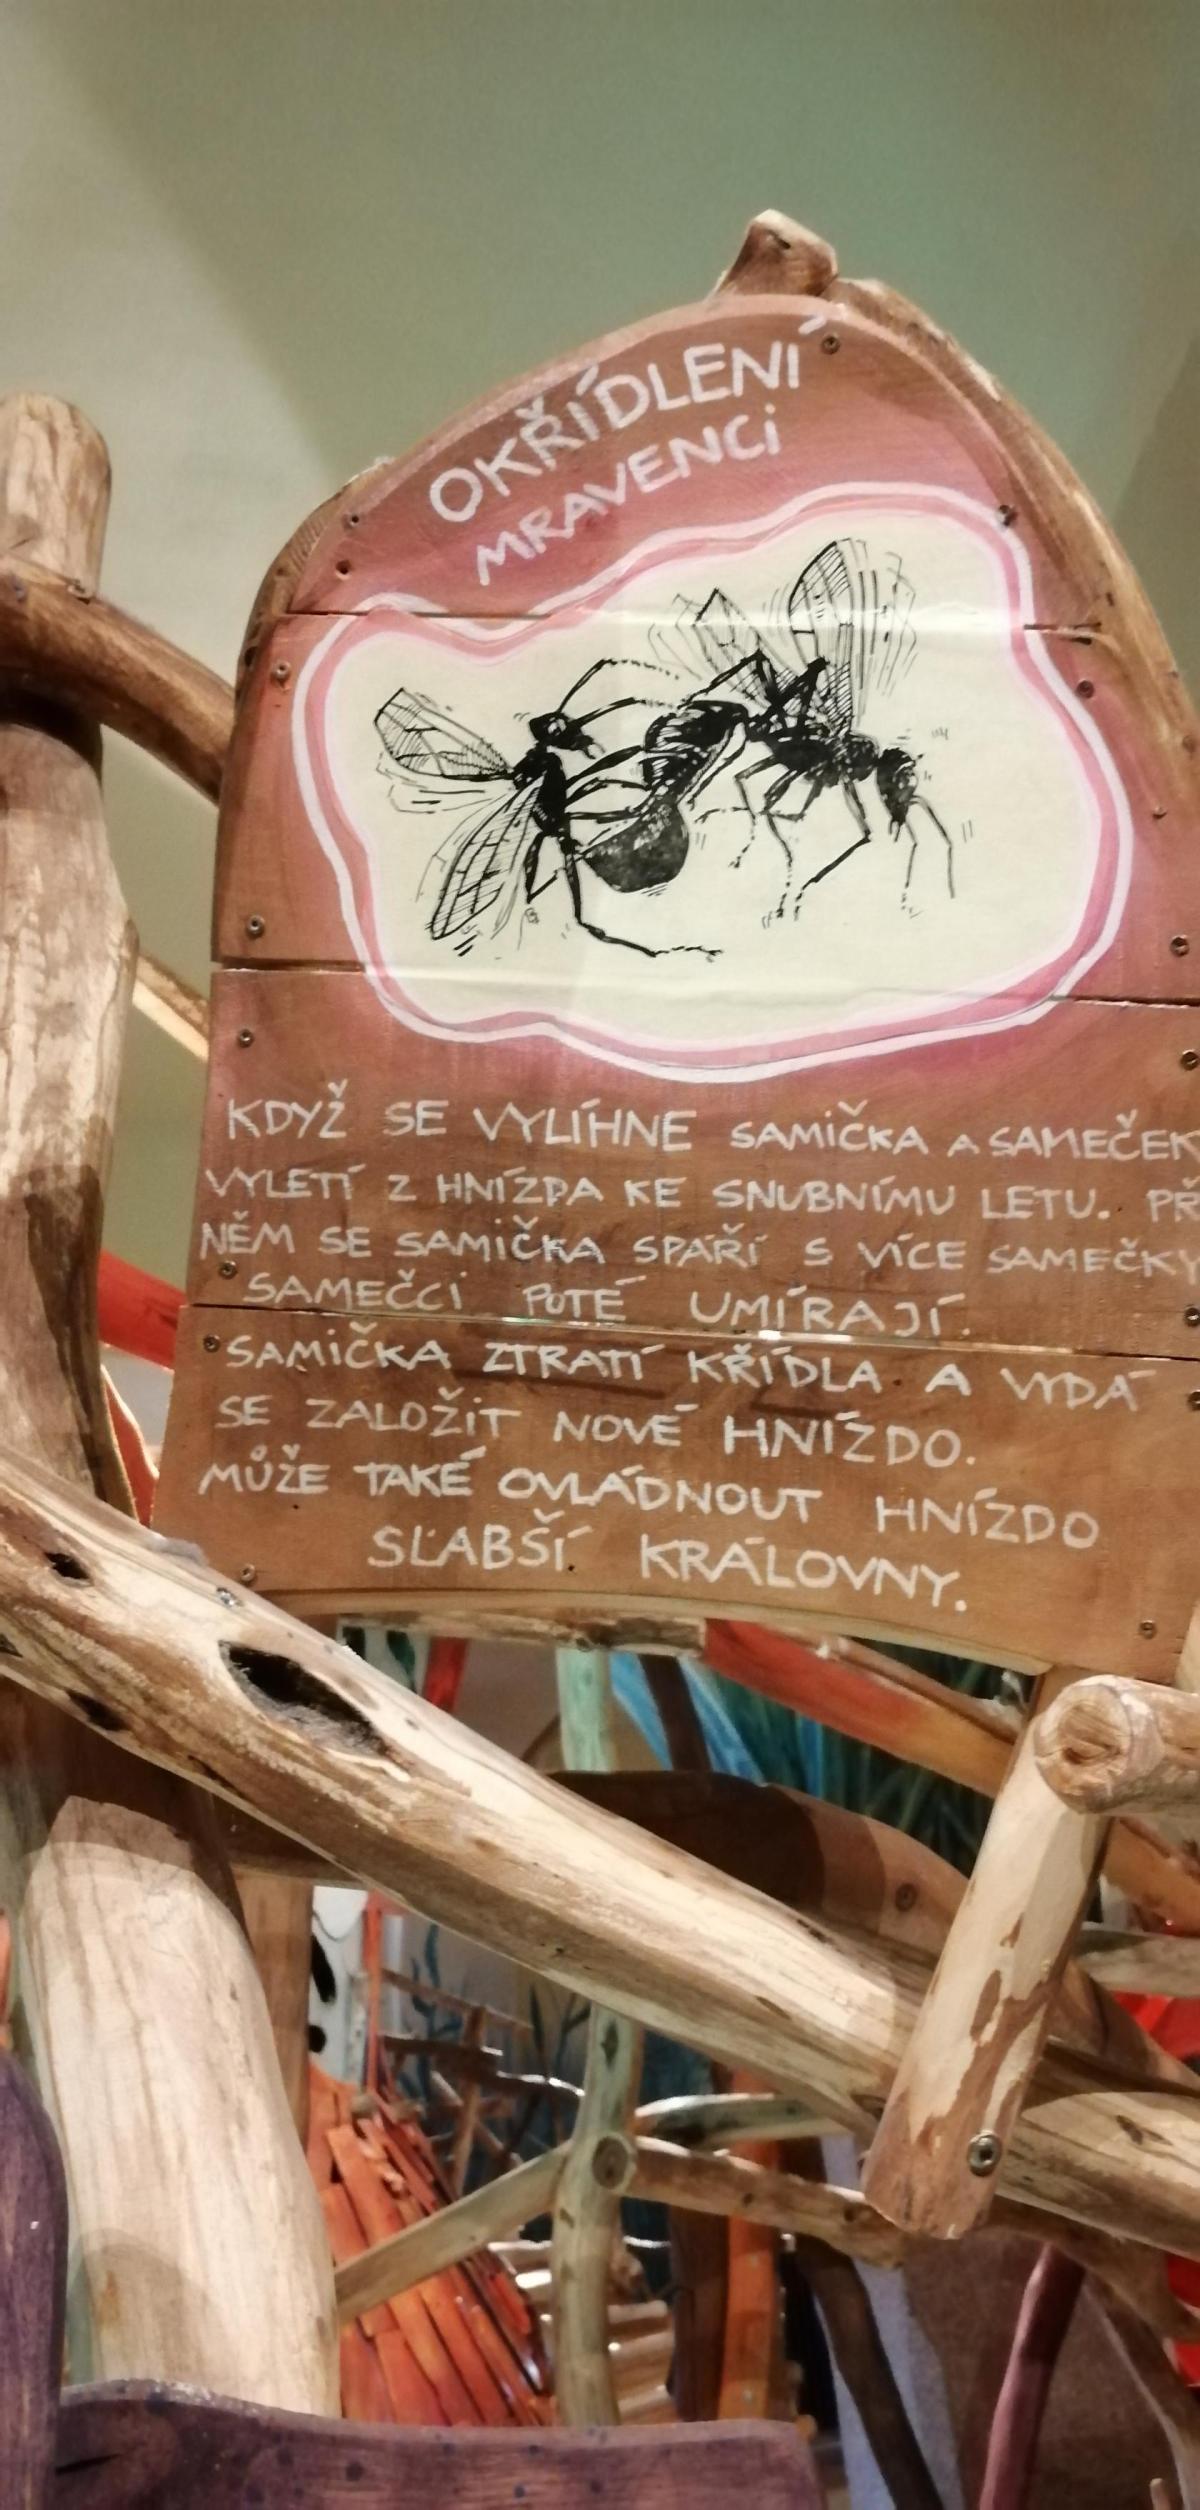 OKŘÍDLENÍ
MRAVENCI
KDYŽ SE VYLÍHNE SAMIČKA A SAMEČEK
VYLETÍ Z HNÍZDA KE SNUBNÍMU LETU. PŘ
NĚM SE SAMIČKA SPÁŘÍ S VÍCE SAMEČKY
SAMEČCI POTÉ UMÍRAJÍ.
SAMIČKA ZTRATÍ KŘÍDLA A VYDÁ
SE ZALOŽIT NOVÉ HNÍZDO.
MŮŽE TAKÉ OVLÁDNOUT HNÍZDO
SLABŠÍ KRÁLOVNY.